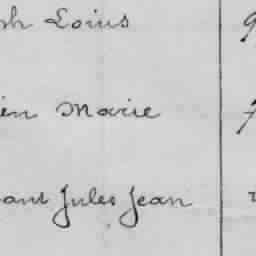 ph Loius
ien Marie
ant Jules Jean